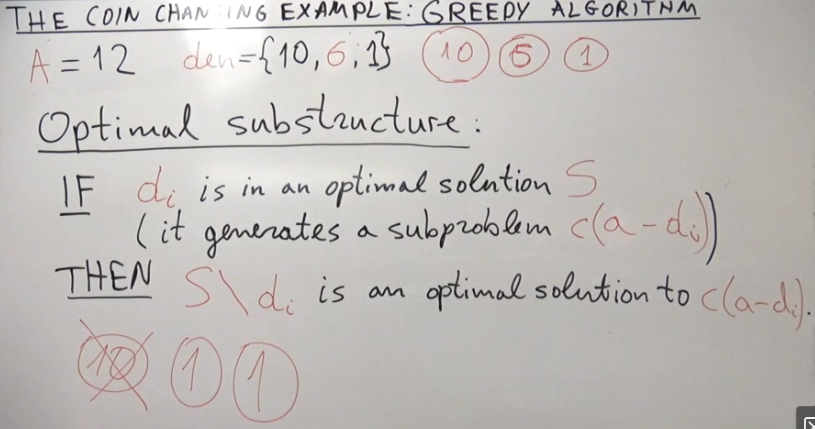 THE COIN CHANGING EXAMPLE: GREEDY ALGORITHM
A = 12 den={10, 6, 1} 10 5 1
Optimal substructure:
IF di is in an optimal solution S
(it generates a subproblem c(a-di))
THEN S\di is an optimal solution to c(a-di).
10 1 1